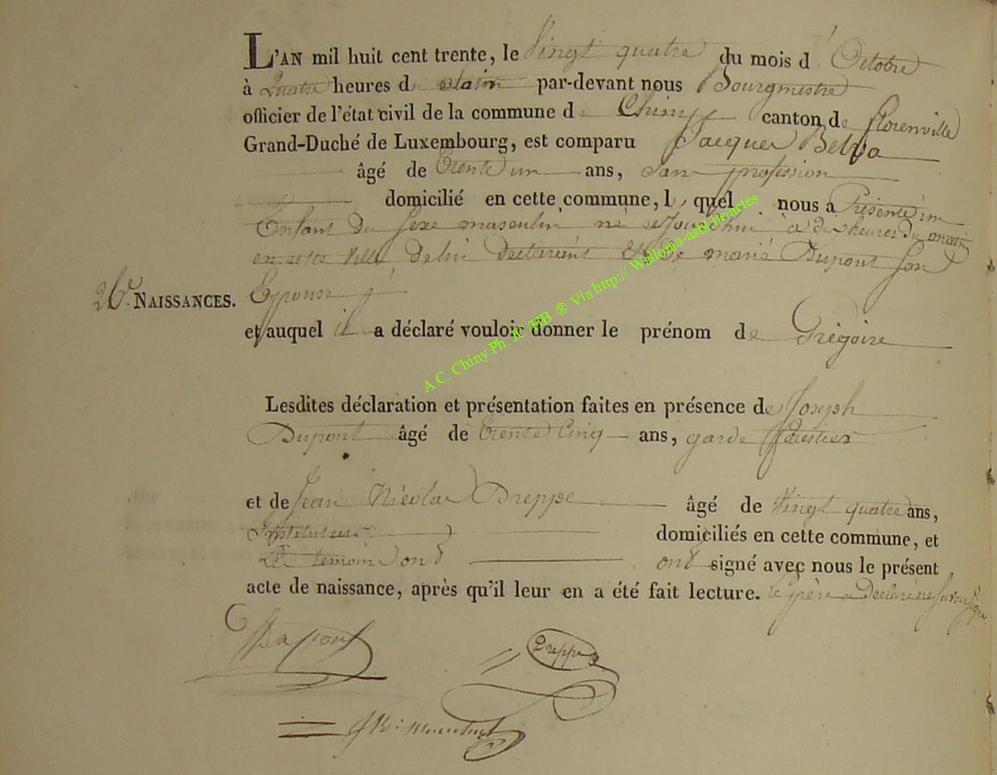 L'AN mil huit cent trente, le Vingt quatre du mois d' Octobre
à Quatre heures du par-devant nous Bourgmestre
officier de l'état civil de la commune de Chiny canton de florenville
Grand-Duché de Luxembourg, est comparu Jacques Belva
âgé de trente un ans, San profession
domicilié en cette commune, lequel nous a Présenté un
Enfant du sexe masculin né ce jourd'hui à dix heures du matin
en cette Ville de lui declarant & de marie Dupont son
Epouse
26e. NAISSANCES.
et auquel il a déclaré vouloir donner le prénom de Grégoire
Lesdites déclaration et présentation faites en présence de Joseph
Dupont âgé de trente Cinq ans, garde forestier
et de Jean Nicolas Dreppe âgé de Vingt quatre ans,
Instituteur domiciliés en cette commune, et
Les temoins ont ont signé avec nous le présent
acte de naissance, après qu'il leur en a été fait lecture. le père a Declaré ne savoir signer
Dupont
Dreppe
A.C. Chiny Ph. JC APB ® Via http:// Wallonia-asbl.be/actes